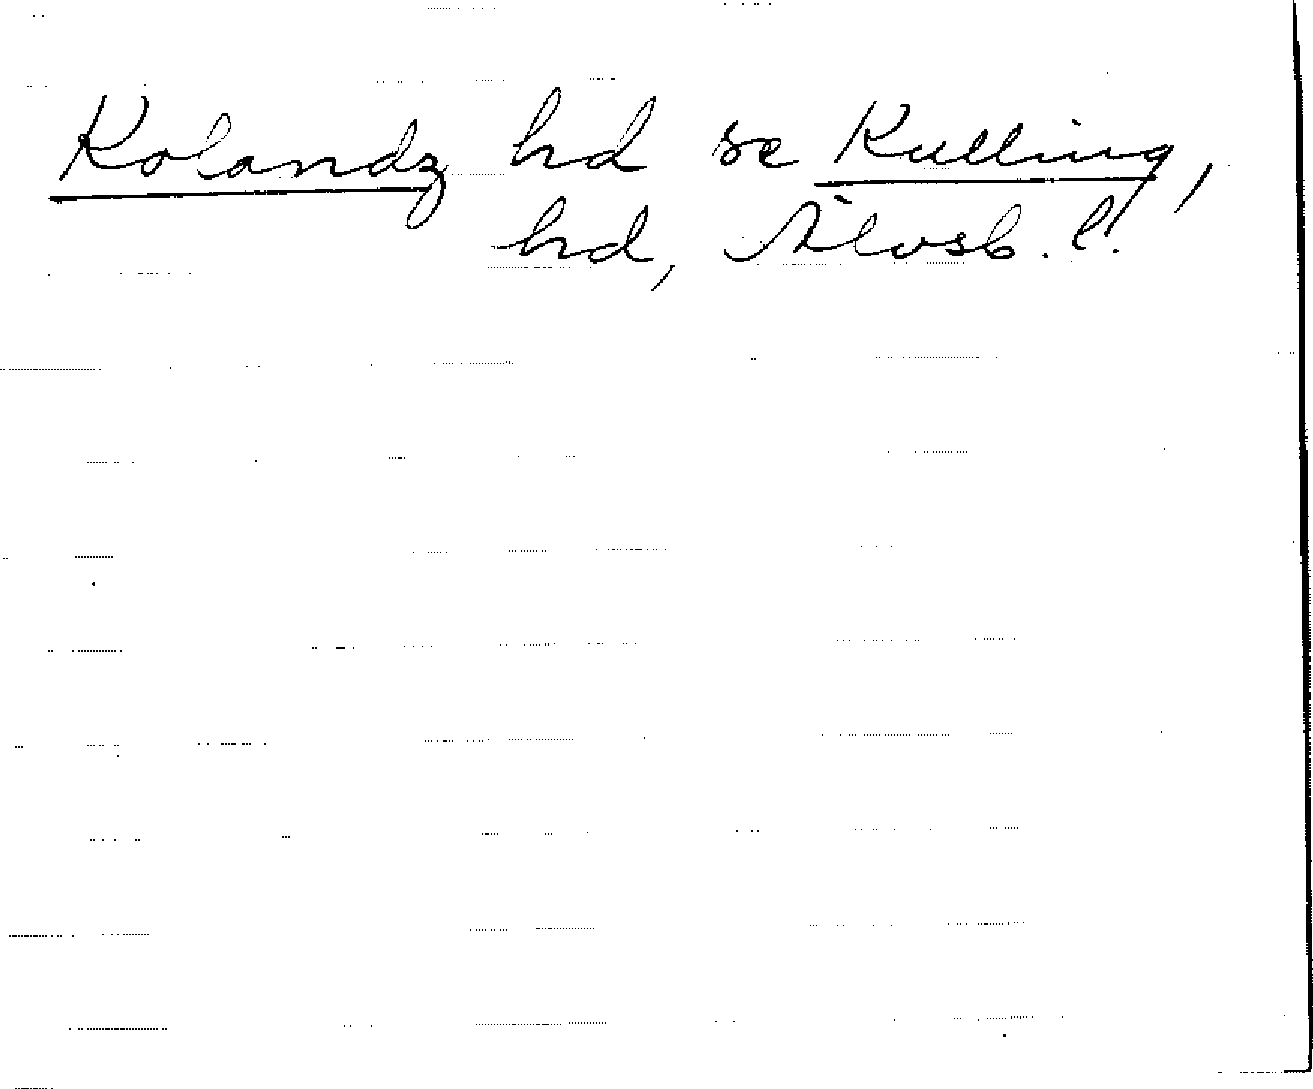 Kolandz hd se Kulling,
hd, Älvsb. l.